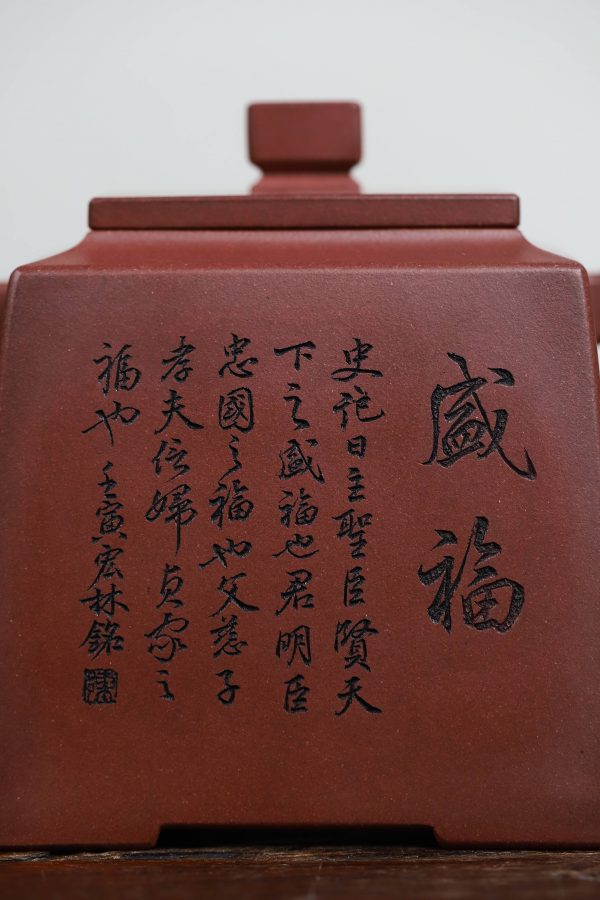 盛福
史記曰主聖臣賢天
下之盛福也君明臣
忠國之福也父慈子
孝夫信婦貞家之
福也 壬寅宏林銘